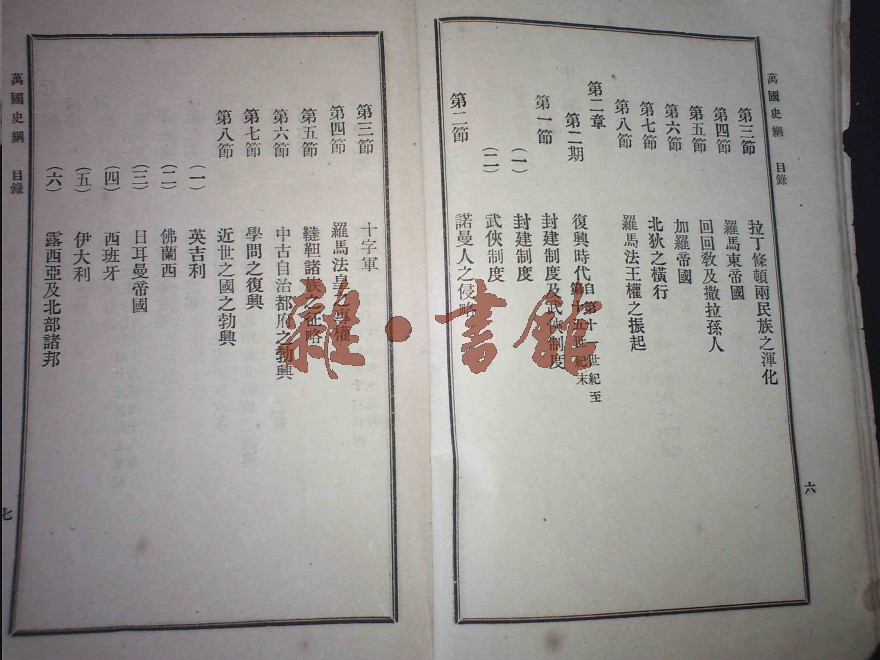 萬國史綱 目錄
第三節 拉丁條頓兩民族之渾化
第四節 羅馬東帝國
第五節 回回敎及撒拉孫人
第六節 加羅帝國
第七節 北狄之橫行
第八節 羅馬法王權之振起
第二章
第二期 復興時代 自第十一世紀至第十五世紀末
第一節 封建制度及武俠制度
(一) 封建制度
(二) 武俠制度
第二節 諾曼人之侵略
六
第三節 十字軍
第四節 羅馬法皇之專權
第五節 韃靼諸族之征略
第六節 中古自治都府之勃興
第七節 學問之復興
第八節 近世之國之勃興
(一) 英吉利
(二) 佛蘭西
(三) 日耳曼帝國
(四) 西班牙
(五) 伊大利
(六) 露西亞及北部諸邦
萬國史綱 目錄
七
雜·書館